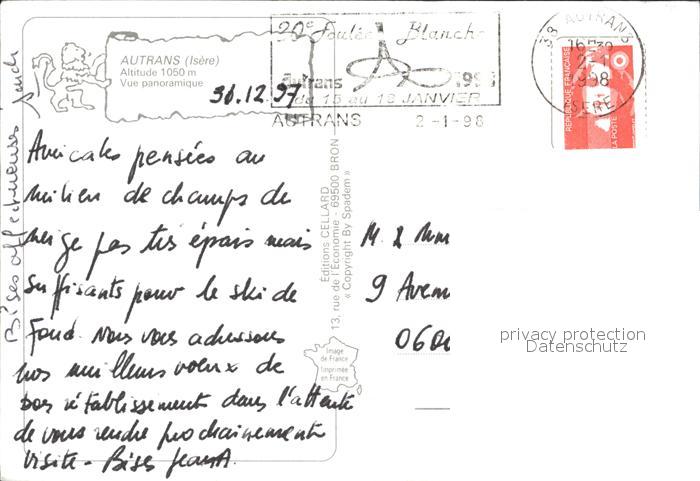 20e Foulée Blanche
autrans 1998
du 15 au 18 JANVIER
AUTRANS 2-1-98
38 AUTRANS
16H30
2-1
1998
ISERE
RÉPUBLIQUE FRANÇAISE
LA POSTE
AUTRANS (Isère)
Altitude 1050 m
Vue panoramique
30.12.97
Amicales pensées au
milieu de champs de
neige pas très épais mais
suffisants pour le ski de
fond. Nous vous adressons
nos meilleurs voeux de
bon rétablissement dans l'attente
de vous rendre prochainement
visite - Bises
Bises affectueuses
Éditions CELLARD
13, rue de l'Économie - 69500 BRON
« Copyright By Spadem »
Image
de France
Imprimée
en France
M. & Mme
9 Aven
060
privacy protection
Datenschutz